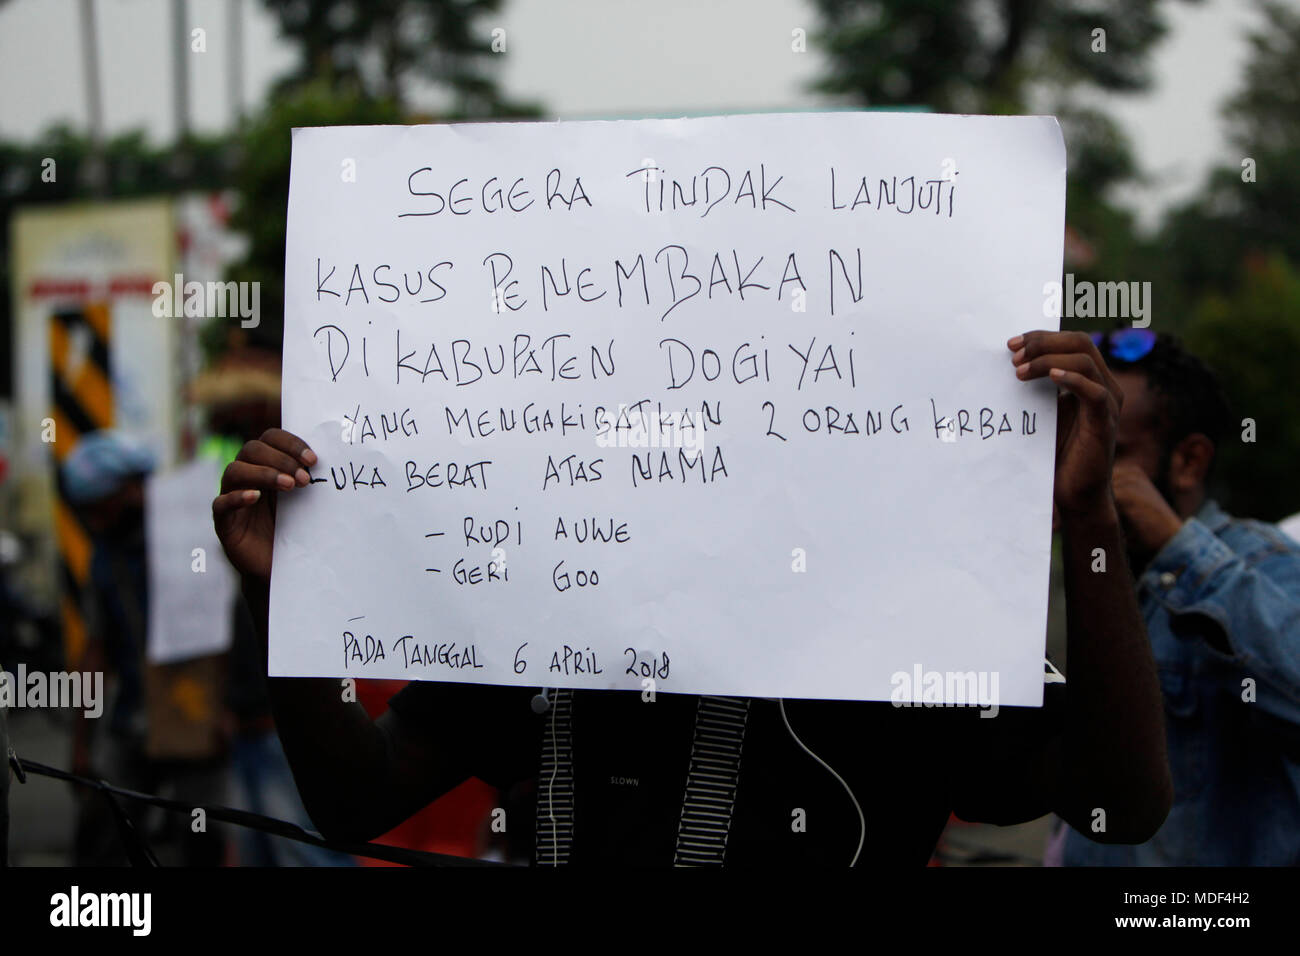 SEGERA TINDAK LANJUTI
KASUS PENEMBAKAN
DI KABUPATEN DOGIYAI
YANG MENGAKIBATKAN 2 ORANG KORBAN
LUKA BERAT ATAS NAMA
- RUDI AUWE
- GERI GOO
PADA TANGGAL 6 APRIL 2018
SLOWN
alamy
Image ID: MDF4H2
www.alamy.com